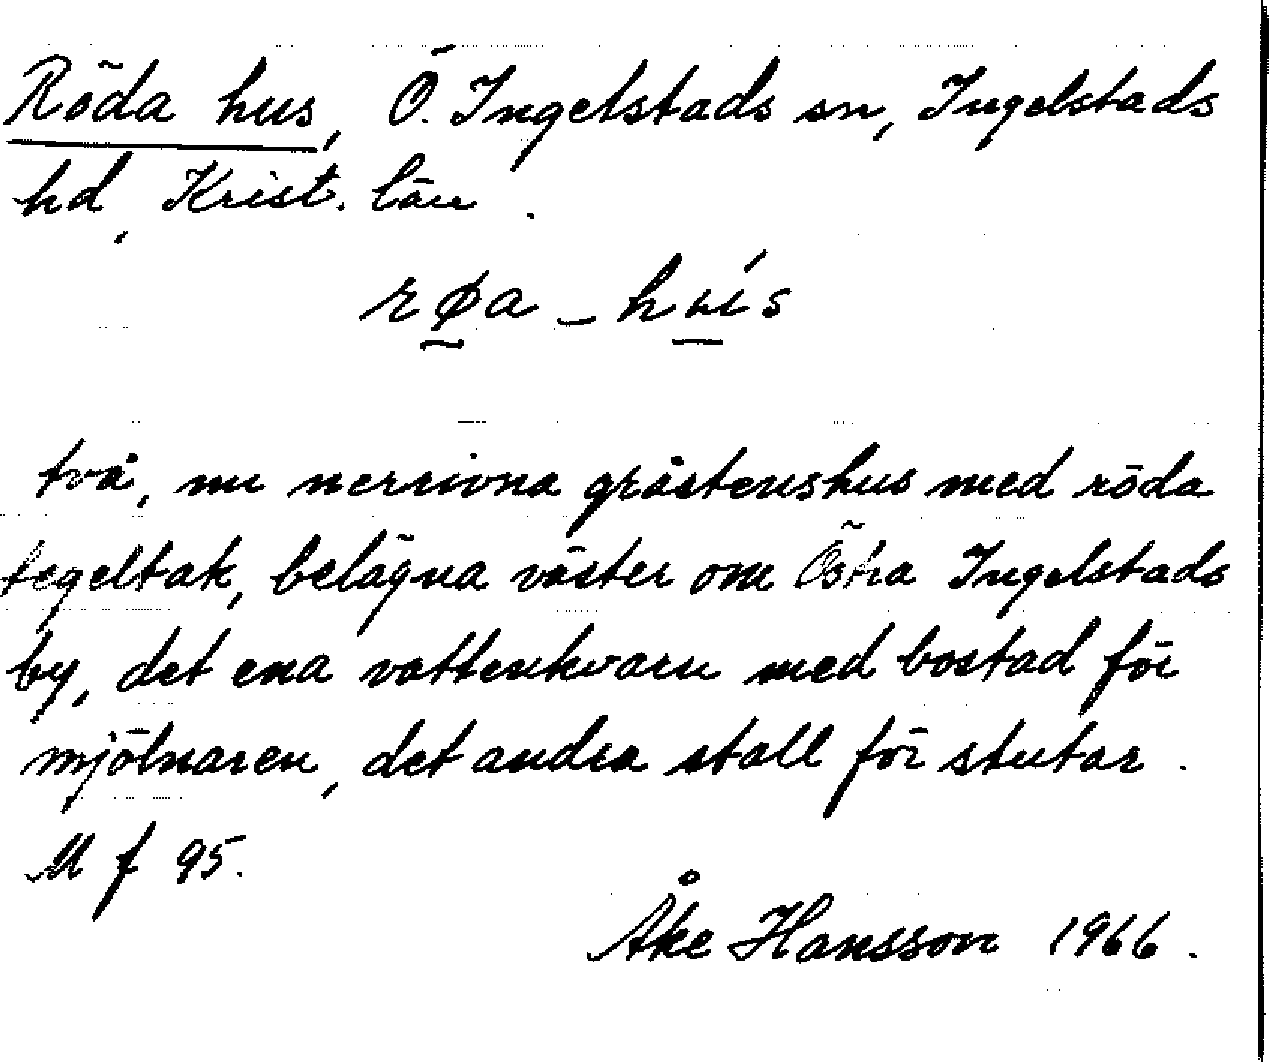 Röda hus, Ö. Ingelstads sn, Ingelstads
hd, Krist. län.
røa - hús
två, nu nerrivna gråstenshus med röda
tegeltak, belägna väster om Östra Ingelstads
by, det ena vattenkvarn med bostad för
mjölnaren, det andra stall för stutar.
M f 95.
Åke Hansson 1966.